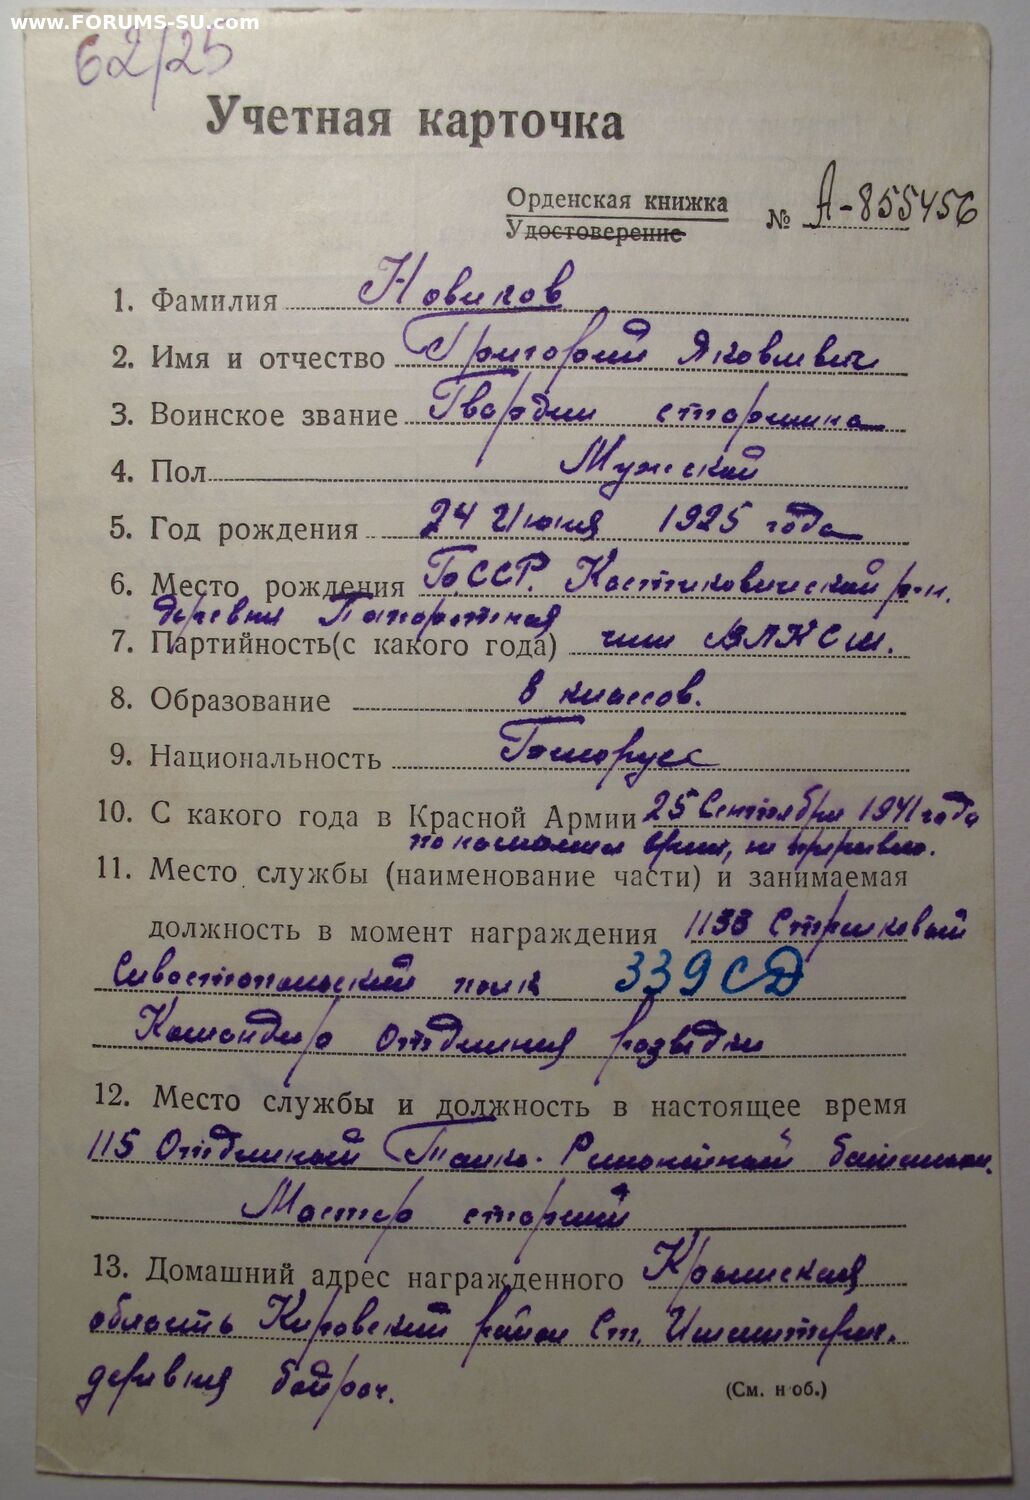 www.FORUMS-SU.com
62/25
Учетная карточка
Орденская книжка
Удостоверение
№ А-855456
1. Фамилия Новиков
2. Имя и отчество Григорий Яковлевич
3. Воинское звание Гвардии старшина
4. Пол Мужской
5. Год рождения 24 Июня 1925 года
6. Место рождения БССР. Костюковический р-н.
деревня
7. Партийность(с какого года) член ВЛКСМ.
8. Образование 8 классов.
9. Национальность Белорусс
10. С какого года в Красной Армии 25 Сентября 1941 года
по настоящее время,
11. Место службы (наименование части) и занимаемая
должность в момент награждения 1133 Стрелковый
Севастопольский полк 339 СД
Командир отделения разведки
12. Место службы и должность в настоящее время
115 Отдельный Танко-Ремонтный батальон.
Мастер старший
13. Домашний адрес награжденного Крымская
область Кировский район Ст.
деревня Байрач.
(См. н об.)